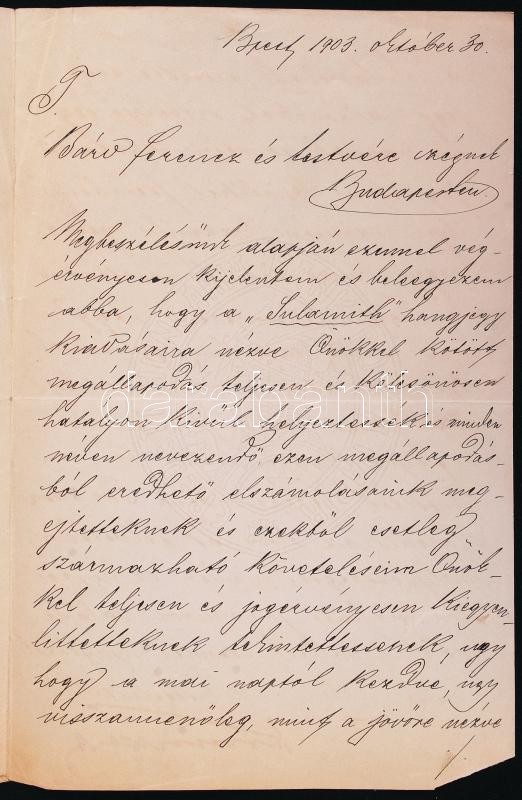 Bpest, 1903. október 30.
T.
Bárd Ferencz és testvére cégnek
Budapesten.
Megbeszélésünk alapján ezennel vég-
érvényesen kijelentem és beleegyezem
abba, hogy a „Sulamith" hangjegy
kiadásaira nézve Önökkel kötött
megállapodás teljesen és kölcsönösen
hatályon kivül helyeztessék és minden
néven nevezendő ezen megállapodás-
ból eredhető elszámolásaink meg-
ejtetteknek és ezekből esetleg
származható követeléseim Önök-
kel teljesen és jogérvényesen kiegyen-
littetteknek tekintessenek, ugy
hogy a mai naptól kezdve, ugy
visszamenőleg, mint a jövőre nézve
./.
darabanth